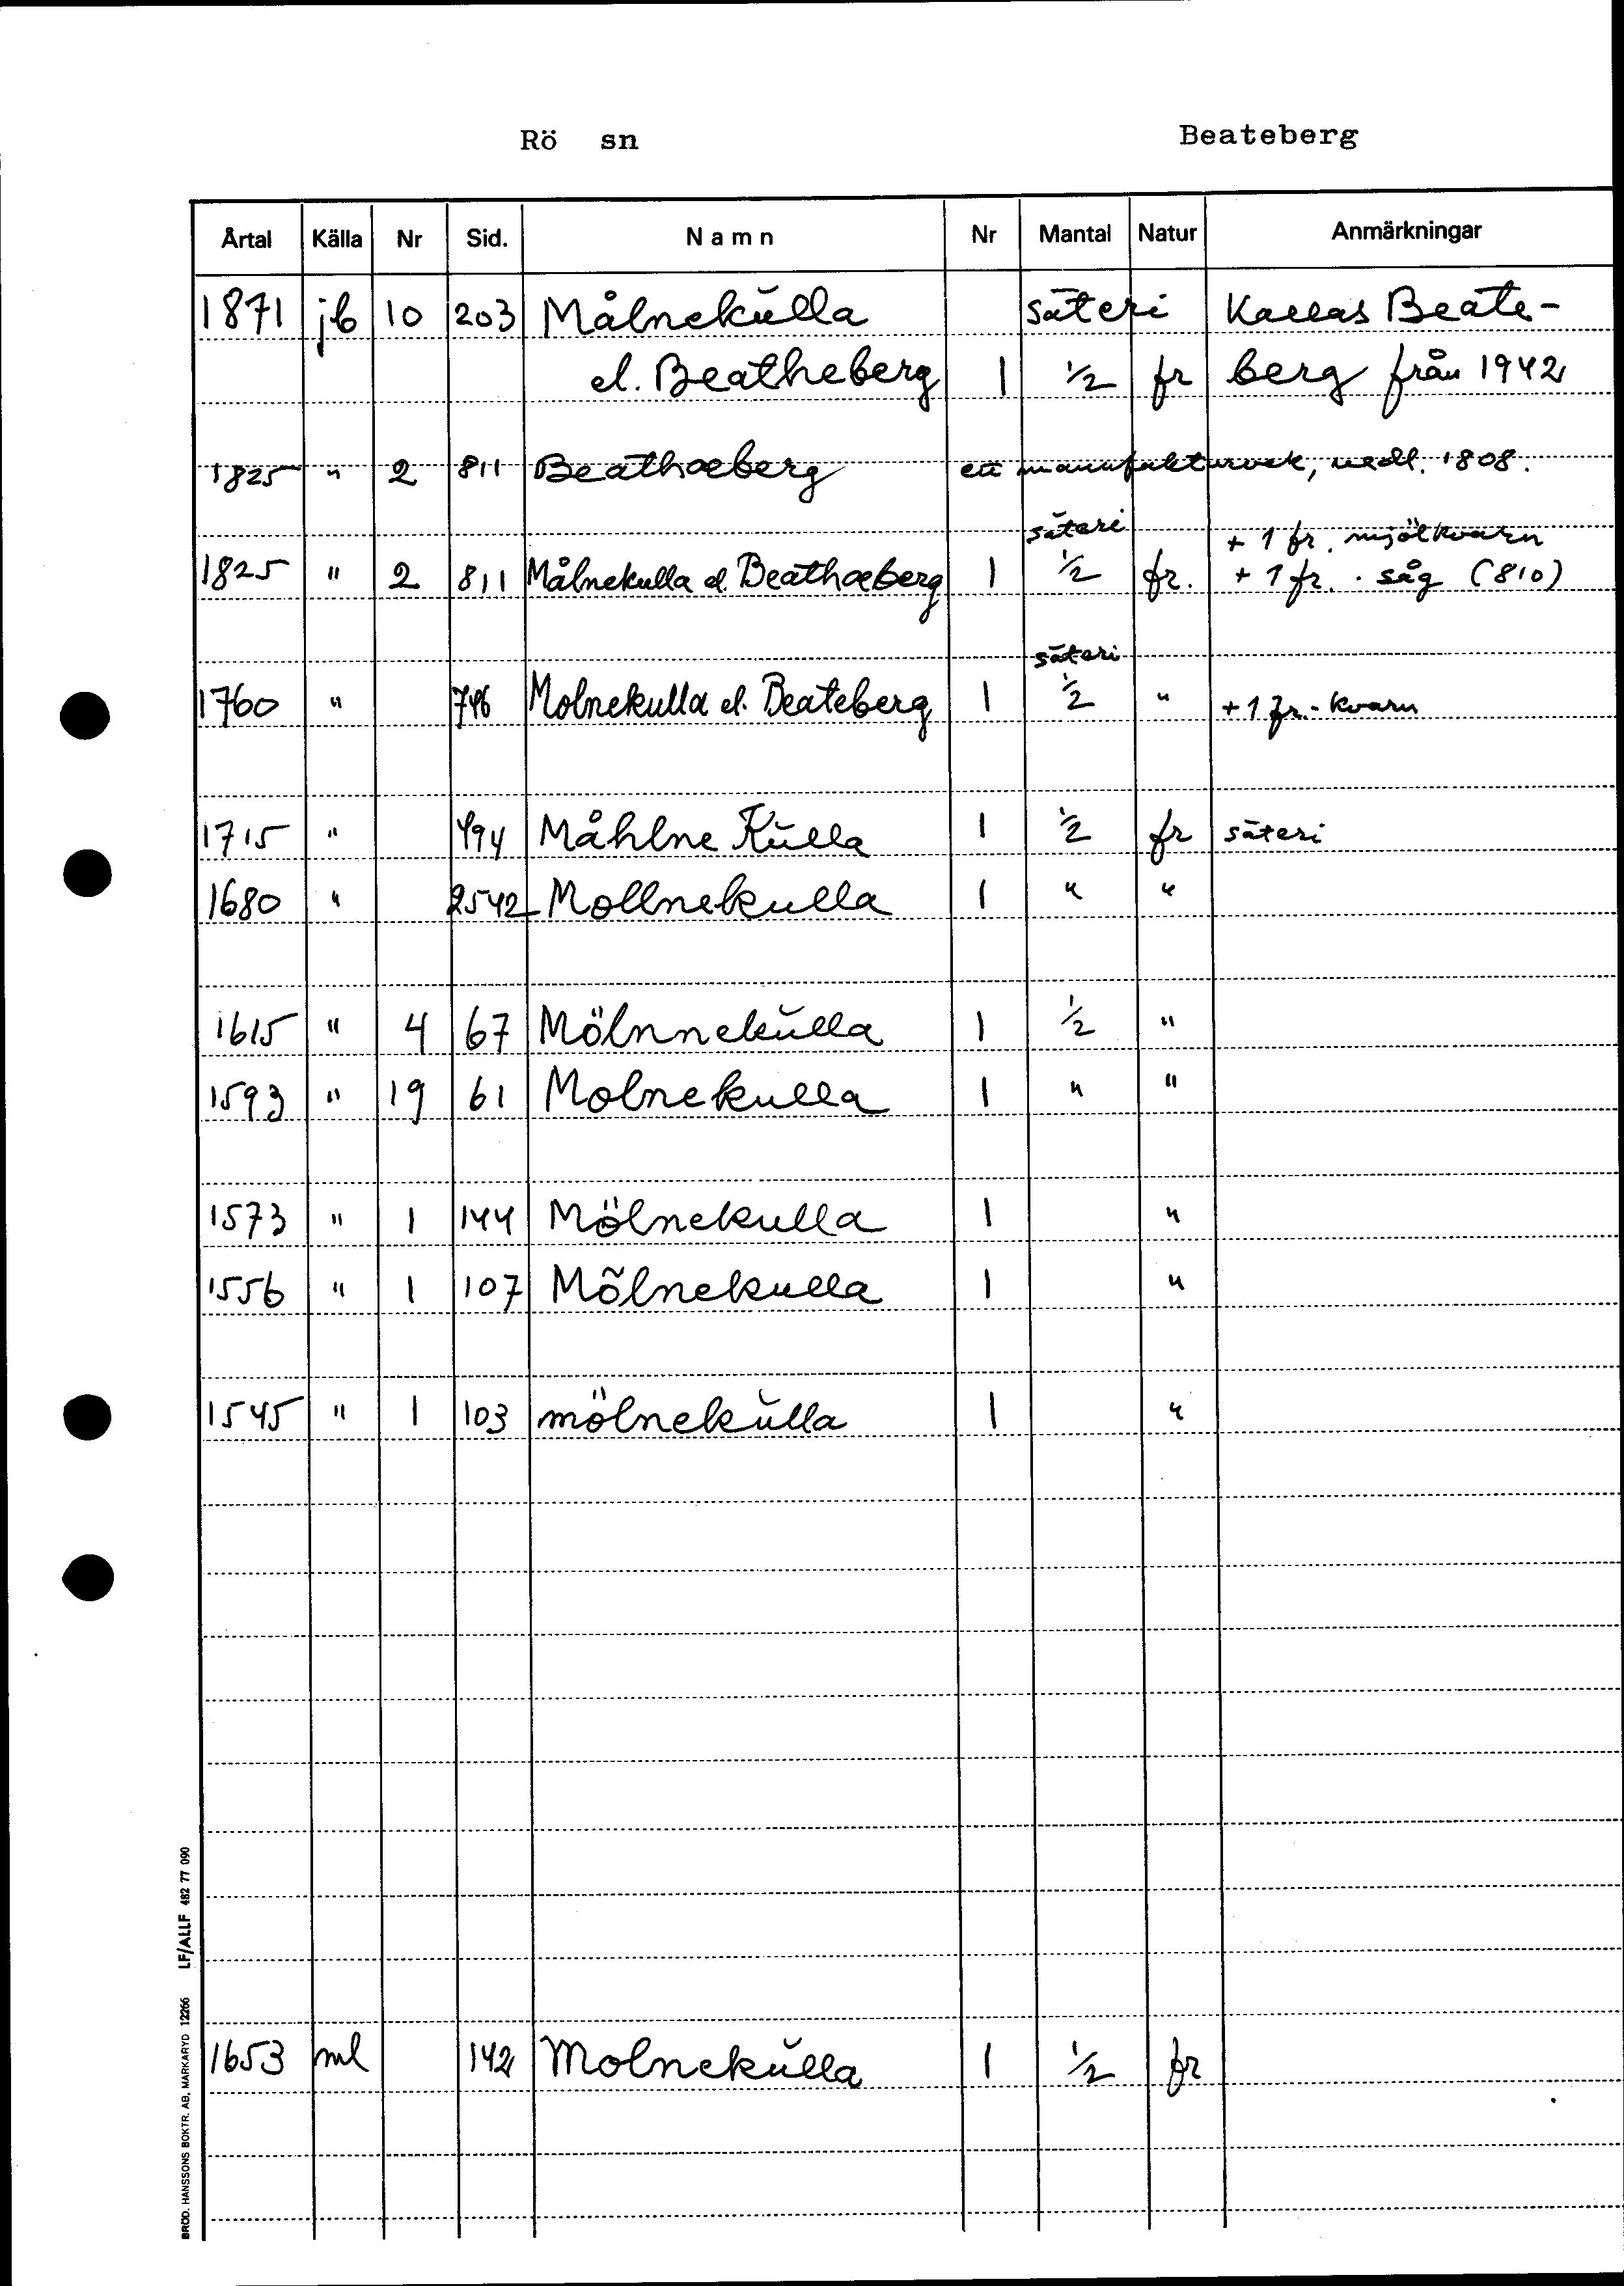 Rö sn Beateberg
Årtal Källa Nr Sid. Namn Nr Mantal Natur Anmärkningar
1871 jb 10 203 Målnekŭlla säteri Kallas Beate-
el. Beatheberg 1 1/2 fr berg från 1942
1825 " 2 811 Beathæberg ett manufakturverk, nedl. 1808.
säteri + 1 fr. mjölkvarn
1825 " 2 811 Målnekulla el. Beathæberg 1 1/2 fr. + 1 fr. såg (810)
säteri
1760 " 746 Molnekulla el. Beateberg 1 1/2 " + 1 fr.-kvarn
1715 " 494 Måhlne Kŭlla 1 1/2 fr säteri
1680 " 2542 Mollnekulla 1 " "
1615 " 4 67 Mölnnekŭlla 1 1/2 "
1593 " 19 61 Molnekulla 1 " "
1573 " 1 144 Mölnekulla 1 "
1556 " 1 107 Mõlnekulla 1 "
1545 " 1 103 mölnekŭlla 1 "
1653 ml 142 Molnekŭlla 1 1/2 fr
BRÖD. HANSSONS BOKTR. AB, MARKARYD 12266 LF/ALLF 482 77 090